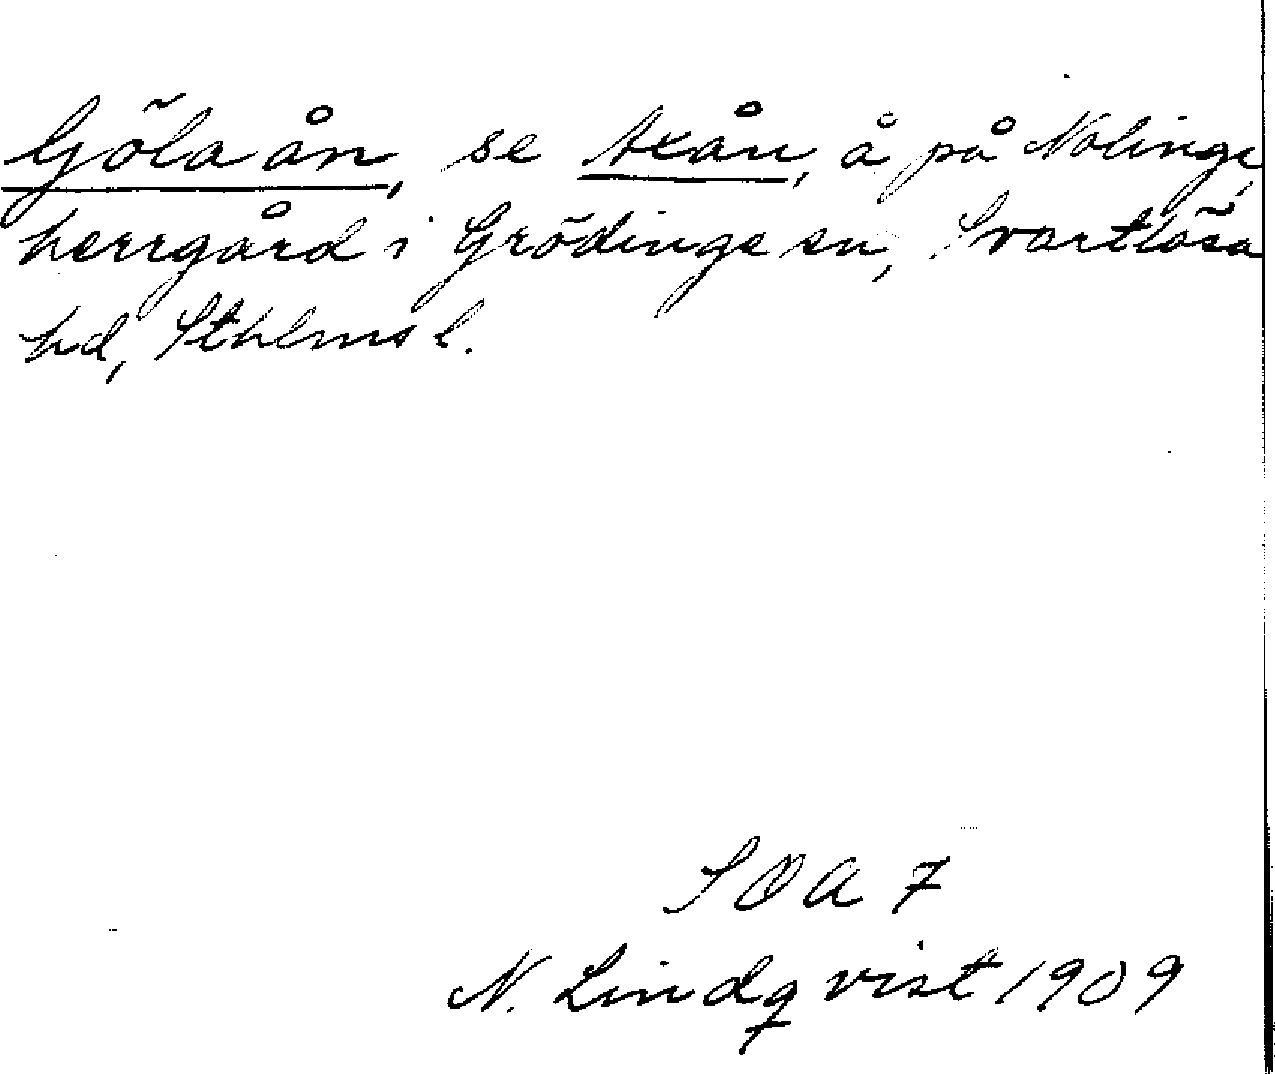 Göla ån, se Axån, å på Nolinge,
herrgård i Grödinge sn, Svartlösa
hd, Sthlms l.
SOA 7
N. Lindqvist 1909